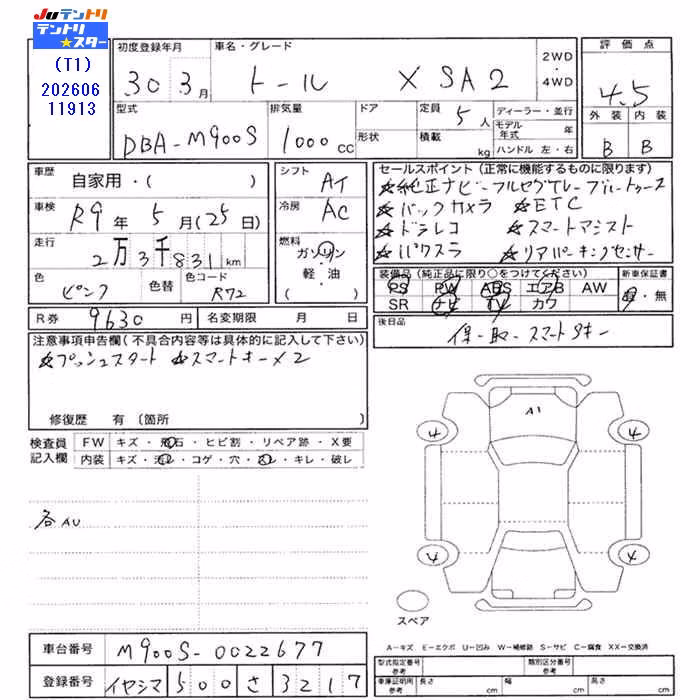 JUテントリ
テントリ★スター
(T1)
202606
11913
初度登録年月
30 3月
車名・グレード
トール X SA2
2WD・4WD
評価点
4.5
外装 内装
B B
型式
DBA-M900S
排気量
1000 CC
ドア
形状
定員 5人
積載 kg
ディーラー・並行
モデル年式 年
ハンドル 左・右
車歴
自家用・( )
車検
R9年 5月(25日)
走行
2万3千831km
色
ピンク
色替
色コード
R72
シフト
AT
冷房
AC
燃料
ガソリン
軽・油
( )
セールスポイント(正常に機能するものに限ります)
☆純正ナビ-フルセグTV-ブルートゥース
☆バックカメラ ☆ETC
☆ドラレコ ☆スマートアシスト
☆パワスラ ☆リアパーキングセンサー
装備品(純正品に限り○をつけてください)
PS PW ABS エアB AW
SR ナビ TV カワ
新車保証書
有・無
R券 9630円
名変期限 月 日
後日品
保-取-スマートキー
注意事項申告欄(不具合内容等は具体的に記入して下さい)
☆プッシュスタート ☆スマートキー×2
修復歴 有(箇所 )
検査員記入欄
FW キズ・飛石・ヒビ割・リペア跡・X要
内装 キズ・汚レ・コゲ・穴・スレ・キレ・破レ
各AU
A1
4 4
4 4
スペア
A-キズ E-エクボ U-凹み W-補修跡 S-サビ C-腐食 XX-交換済
車台番号 M900S-0022677
登録番号 イヤシマ 500 さ 3217
型式指定番号 参考
類別区分番号 参考
車庫証明用参考 長さ cm 幅 cm 高さ cm